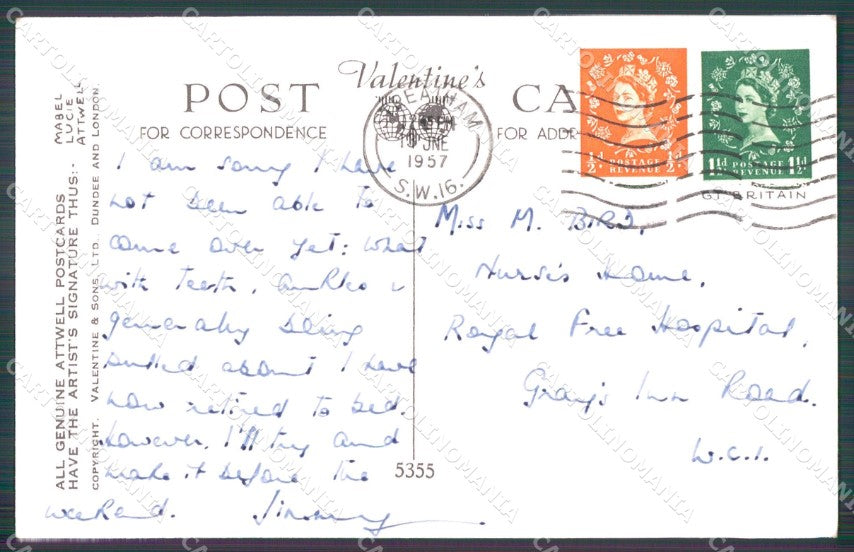 POST Valentine's CA
FOR CORRESPONDENCE FOR ADD
STREATHAM
PM
JNE
1957
S.W.16.
½d POSTAGE REVENUE ½d
1½d POSTAGE REVENUE 1½d
GT. BRITAIN
ALL GENUINE ATTWELL POSTCARDS
HAVE THE ARTIST'S SIGNATURE THUS:-
MABEL
LUCIE
ATTWELL
COPYRIGHT. VALENTINE & SONS, LTD. DUNDEE AND LONDON.
I am sorry I have
not been able to
come over yet: what
with teeth, ankles &
generally being
pulled about I have
now retired to bed.
however, I'll try and
make it before the
weekend. Jimmy
5355
Miss M. BIRD,
Nurse's Home,
Royal Free Hospital,
Gray's Inn Road.
W.C.1.
CARTOLINOMANIA